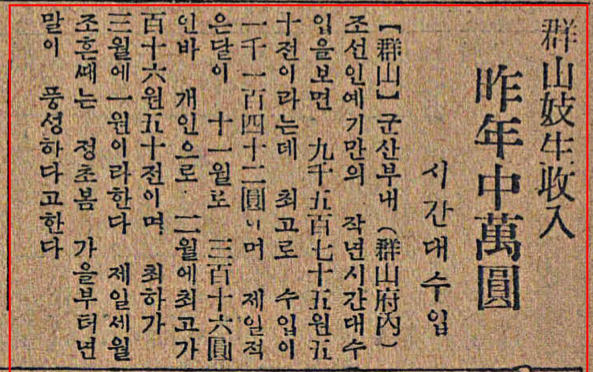 群山妓生收入
昨年中萬圓
시간대수입
【群山】군산부내(群山府內)
조선인예기만의 작년시간대수
입을보면 九千五百七十五원五
十전이라는데 최고로 수입이
一千一百四十二圓이며 제일적
은달이 十一월로 三百十六圓
인바 개인으로 二월에최고가
百十六원五十전이며 최하가
三월에一원이라한다 제일세월
조흔때는 정초봄 가을부터년
말이 풍성하다고한다